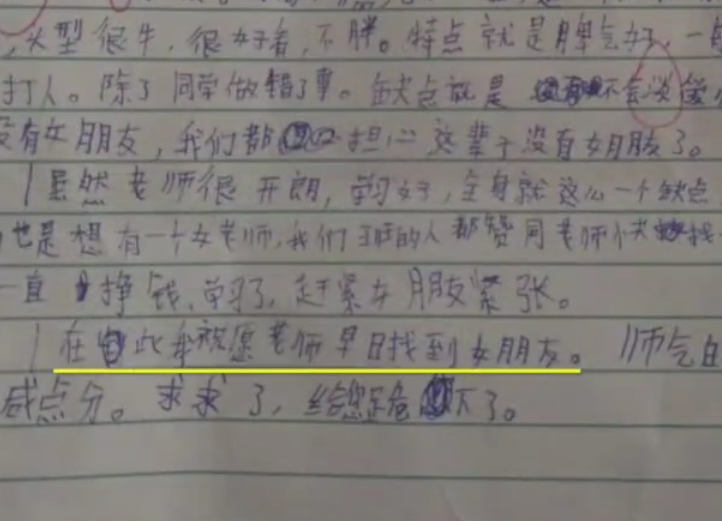 火型很牛，很好看，不胖。特点就是脾气好，一
打人。除了同学做错了事。缺点就是不会谈
没有女朋友，我们都担心这辈子没有女朋友了。
虽然老师很开朗，学习好，全身就这么一个缺点
也是想有一个女老师，我们班的人都赞同老师快找
一直挣钱，单了，赶紧女朋友紧张。
在此我祝愿老师早日找到女朋友。师气
减点分。求求了，给您跪下了。